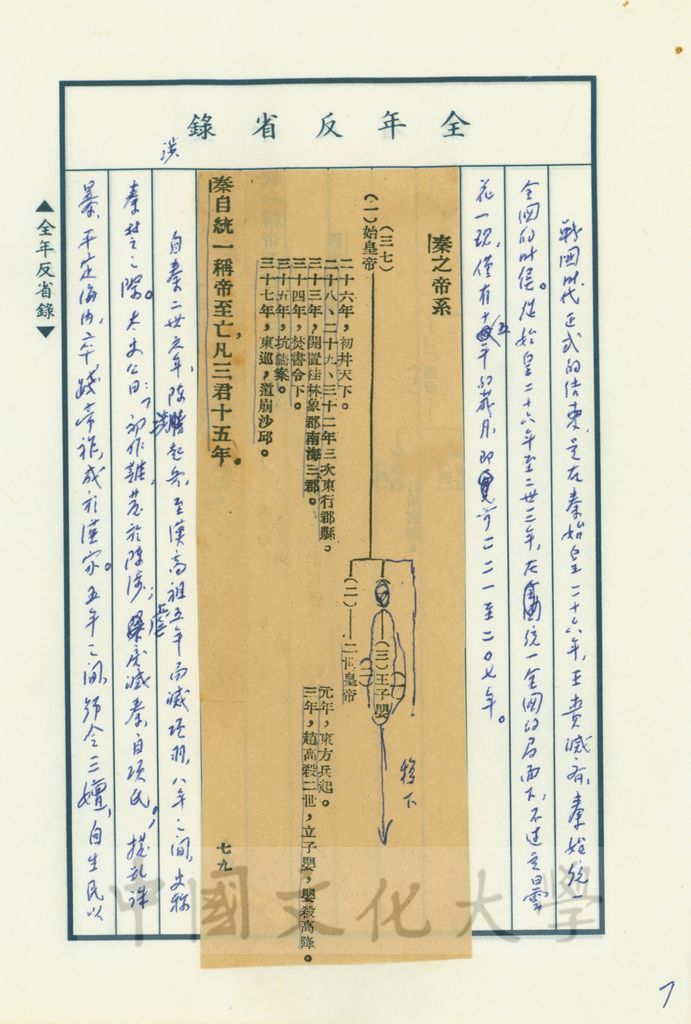 全年反省錄
戰國時代正式的結束,是在秦始皇二十六年,王賁滅齊,秦始統一
全國的時侯。從始皇二十六年至二世三年,在統一全國的局面下,不過是曇
花一現,僅有十五年的歲月,即前二二一至二〇七年。
秦之帝系
(三七)
(一)始皇帝
二十六年,初并天下。
二十八、二十九、三十二年三次東行郡縣。
三十三年,開置桂林象郡南海三郡。
三十四年,焚書令下。
三十五年,坑儒案。
三十七年,東巡,道崩沙邱。
(三)王子嬰
(二)
(二)二世皇帝
元年,東方兵起。
三年,趙高殺二世,立子嬰,嬰殺高降。
移下
秦自統一稱帝至亡凡三君十五年。
七九
自秦二世元年,陳勝起兵,至漢高祖五年而滅項羽,八年之間,史稱
秦楚之際。太史公曰:「初作難,發於陳涉;虐戾滅秦,自項氏;撥亂誅
暴,平定海內,卒踐帝祚,成於漢家。五年之間,號令三嬗,自生民以
▲全年反省錄▼
中國文化大學
7